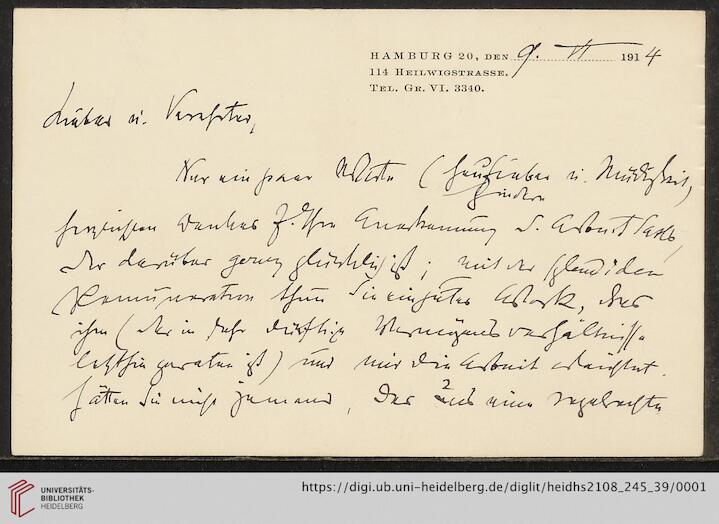 HAMBURG 20, DEN 9. VI 1914
114 HEILWIGSTRASSE.
TEL. GR. VI. 3340.
Lieber u. Verehrter,
Nur ein paar Worte (Heufieber u. Müdigkeit,
hindern)
herzlichsten Dankes f. Ihre Anerkennung d. Arbeit Saxls,
der darüber ganz glücklich ist; mit der splendiden
Remuneration thun Sie ein gutes Werk, das
ihm (der in sehr dürftige Vermögensverhältnisse
letzthin geraten ist) und mir die Arbeit erleichtert.
Hätten Sie nicht jemand, der uns eine regelrechte
UNIVERSITÄTS-
BIBLIOTHEK
HEIDELBERG
https://digi.ub.uni-heidelberg.de/diglit/heidhs2108_245_39/0001